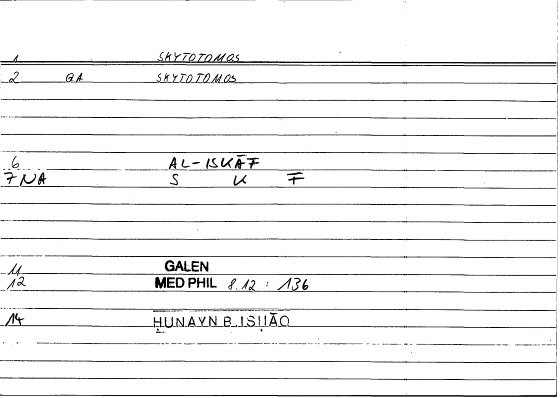 1 SKYTOTOMOS
2 GA SKYTOTOMOS
6 AL-ISKĀF
7 NA S K F
11 GALEN
12 MED PHIL 8.12 : 136
14 ḤUNAYN B. ISḤĀQ